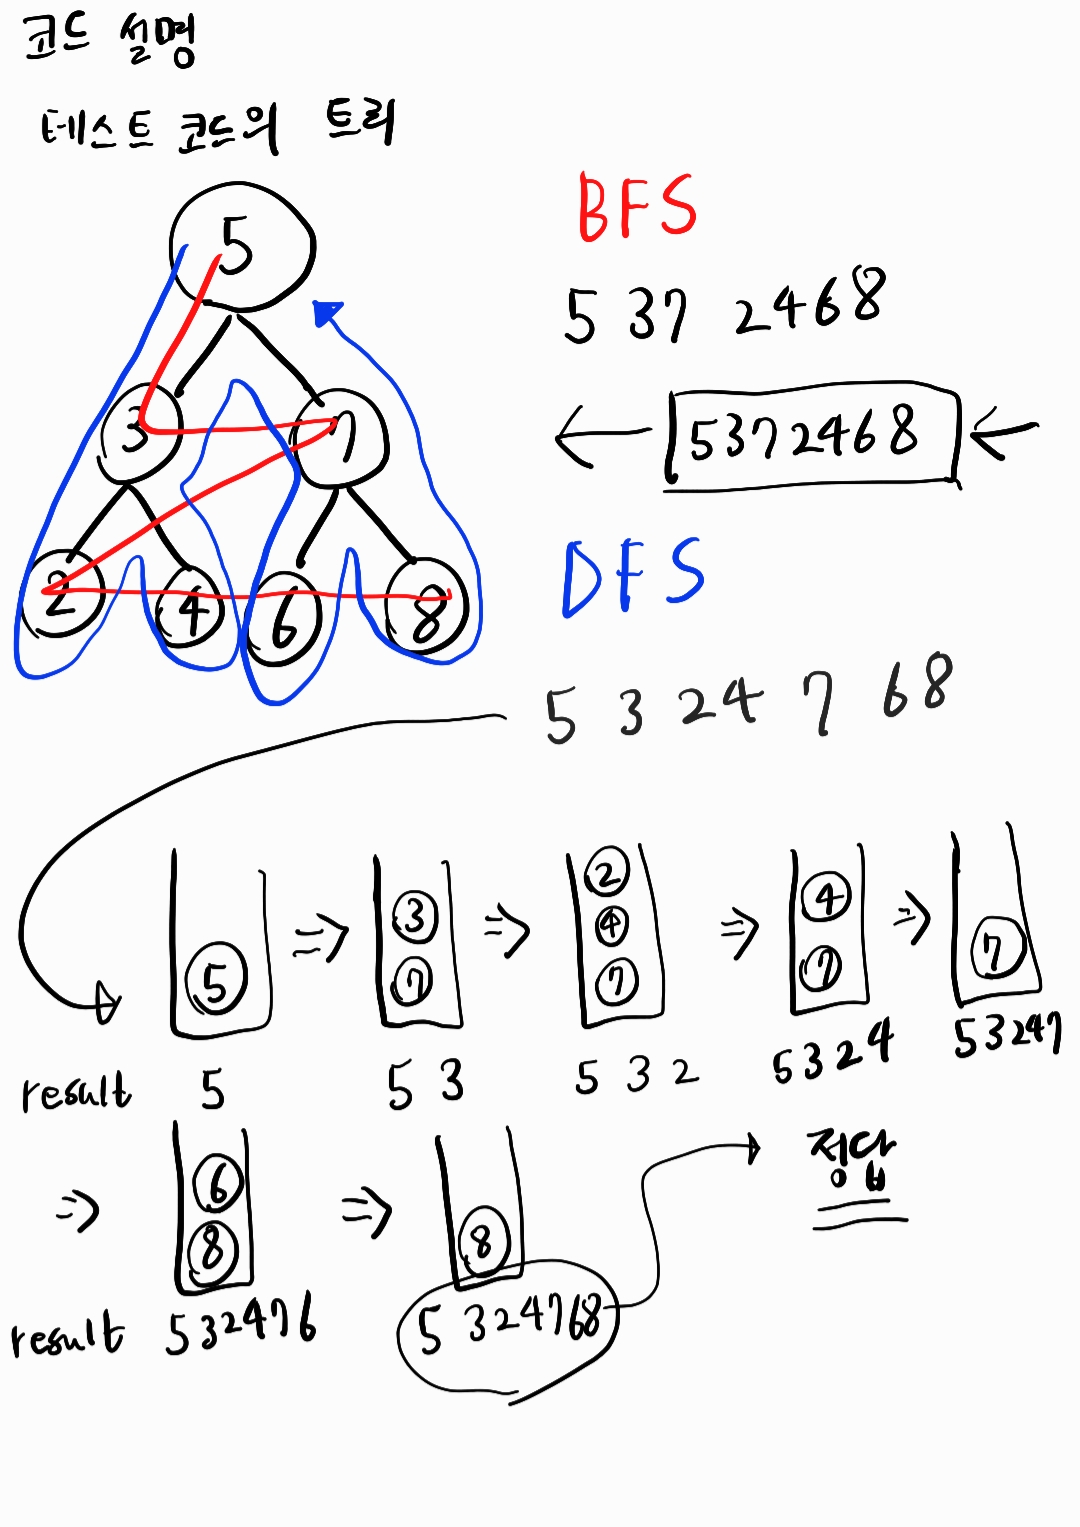 코드 설명
테스트 코드의 트리
5
3 7
2 4 6 8
BFS
5 37 2468
5372468
DFS
5 3 24 7 68
5
3
7
2
4
7
4
7
7
result 5
5 3
5 3 2
5324
53247
6
8
8
정답
result 532476
5324768